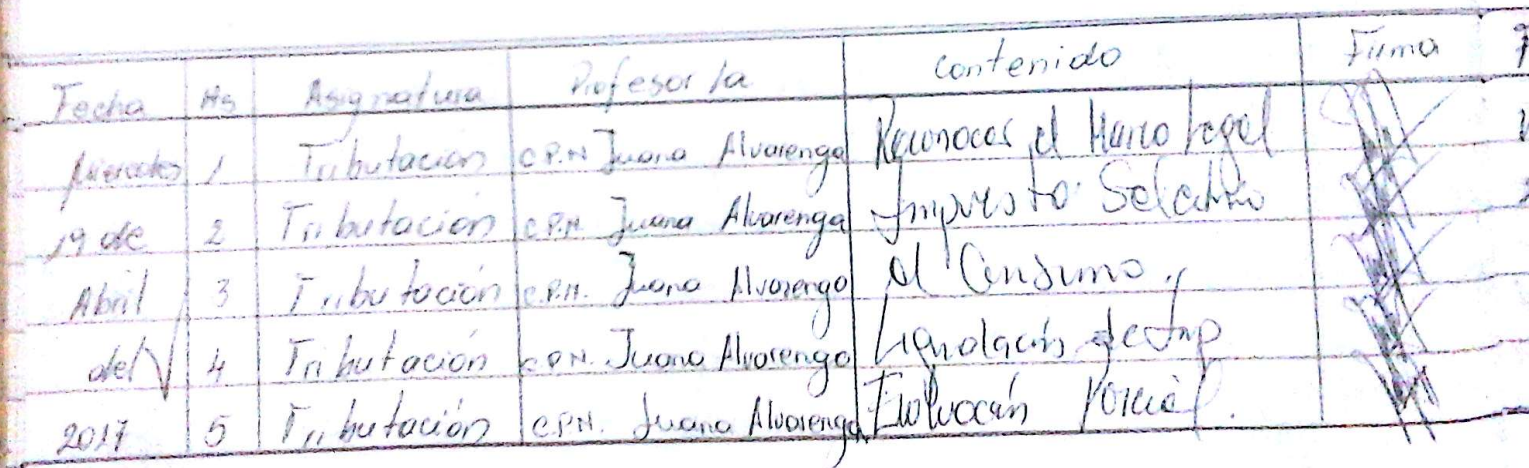 Fecha Hs Asignatura Profesor/a Contenido Firma
Miércoles 1 Tributación C.P.N Juana Alvarenga Reconocer el Marco Legal
19 de 2 Tributación C.P.N. Juana Alvarenga Impuesto Selectivo
Abril 3 Tributación C.P.N. Juana Alvarenga al Consumo y
del 4 Tributación C.P.N. Juana Alvarenga Liquidación de Imp
2017 5 Tributación C.P.N. Juana Alvarenga Evaluación Parcial.